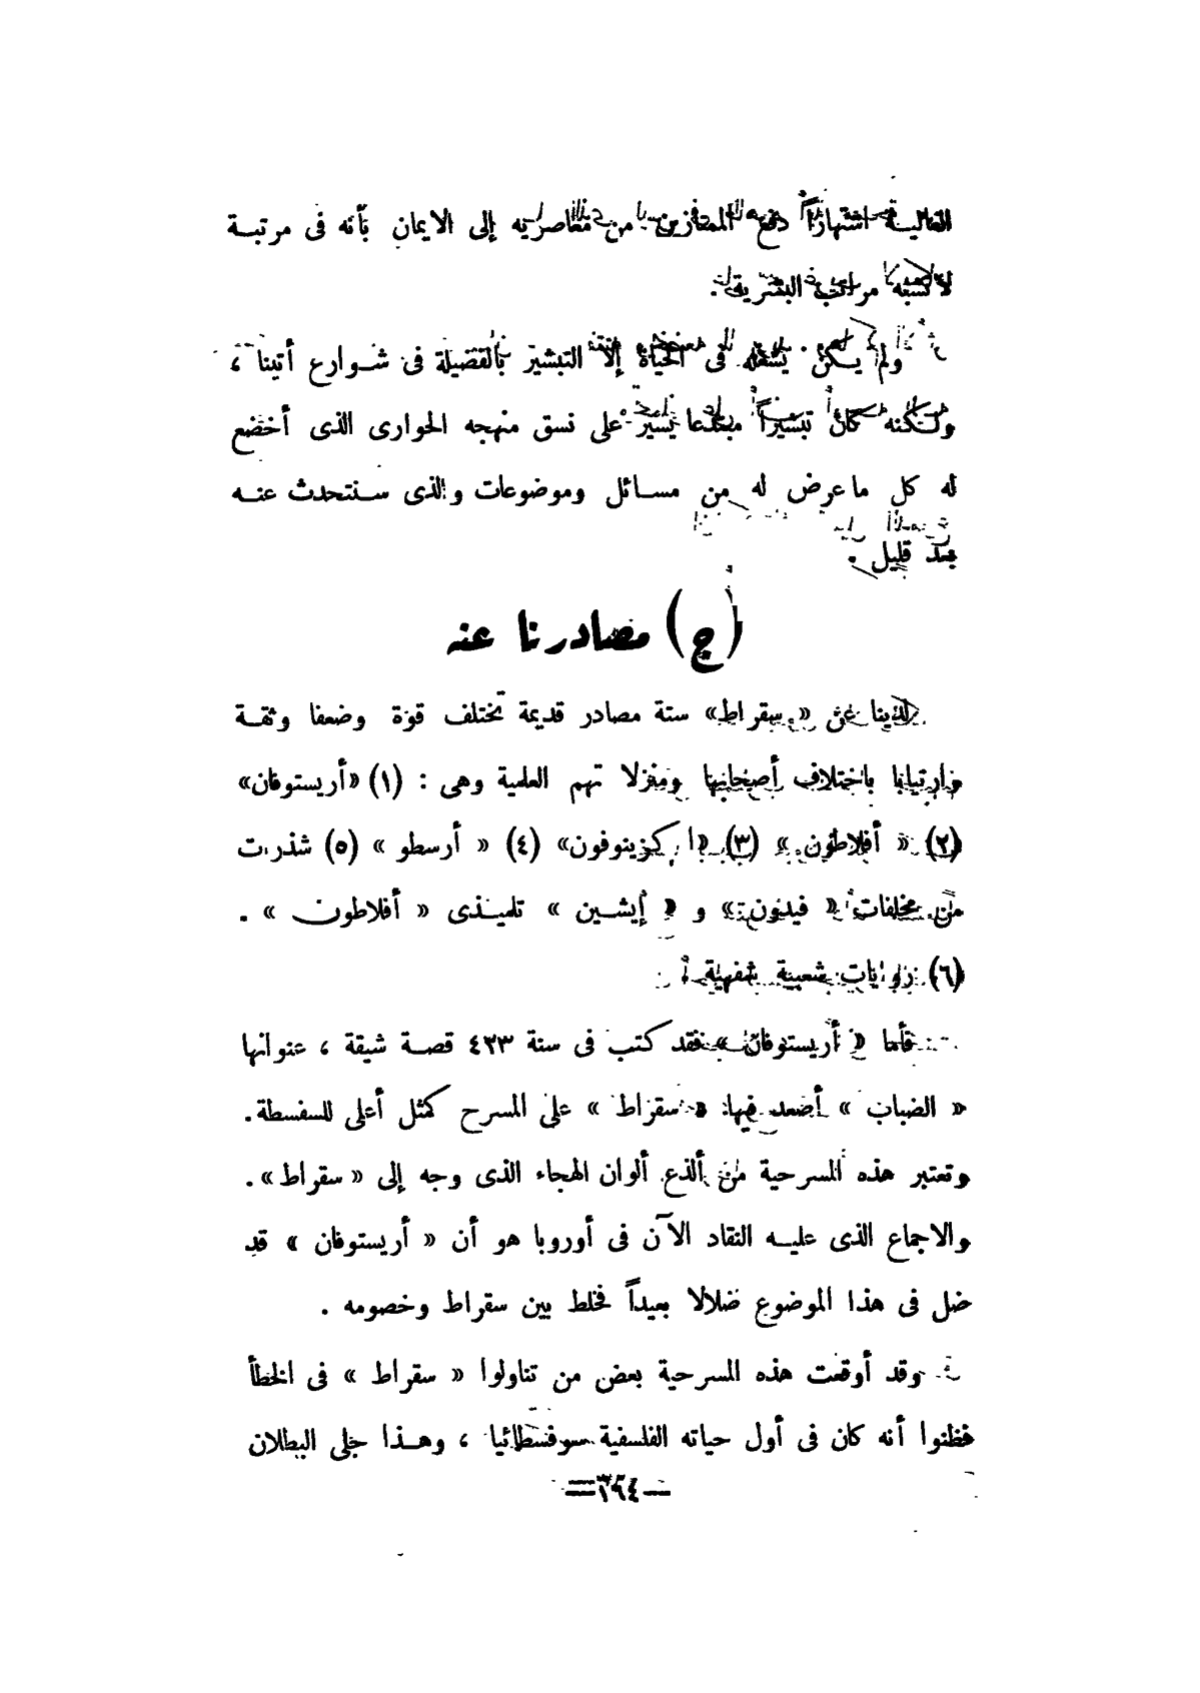 العاليـة اشتهاراً دفع الممتازين من معاصريه إلى الايمان بأنه فى مرتبـة
مراتب البشرية .
ولم يـكن يشغله فى الحياة إلا التبشير بالفضيلة فى شـوارع أتينا ،
ولـكنه كان تبشيراً مبتدعا يسير على نسق منهجه الحوارى الذى أخضع
له كل ما عرض له من مسـائل وموضوعات والذى سـنتحدث عنـه
بعد قليل .
(ج) مصادرنا عنه
لدينا عن «سقراط» ستة مصادر قديمة تختلف قوة وضعفا وثقـة
وارتيابا باختلاف أصحابها ومنزلا تهم العلمية وهى : (١) «أريستوفان»
(٢) « أفلاطون » (٣) «ا كزينوفون» (٤) « أرسطو » (٥) شذرات
من مخلفات « فيدون » و « إيشـين » تلميـذى « أفلاطون » .
(٦) روايات شعبية شفهية .
فأما « أريستوفان » فقد كتب فى سنة ٤٢٣ قصـة شيقة ، عنوانها
« الضباب » أصعد فيها « سقراط » على المسرح كمثل أعلى للسفسطة .
وتعتبر هذه المسرحية من ألذع ألوان الهجاء الذى وجه إلى «سقراط» .
والاجماع الذى عليـه النقاد الآن فى أوروبا هو أن « أريستوفان » قد
ضل فى هذا الموضوع ضلالا بعيداً فخلط بين سقراط وخصومه .
وقد أوقعت هذه المسرحية بعض من تناولوا « سقراط » فى الخطأ
فظنوا أنه كان فى أول حياته الفلسفية سوفسطائيا ، وهـذا جلى البطلان